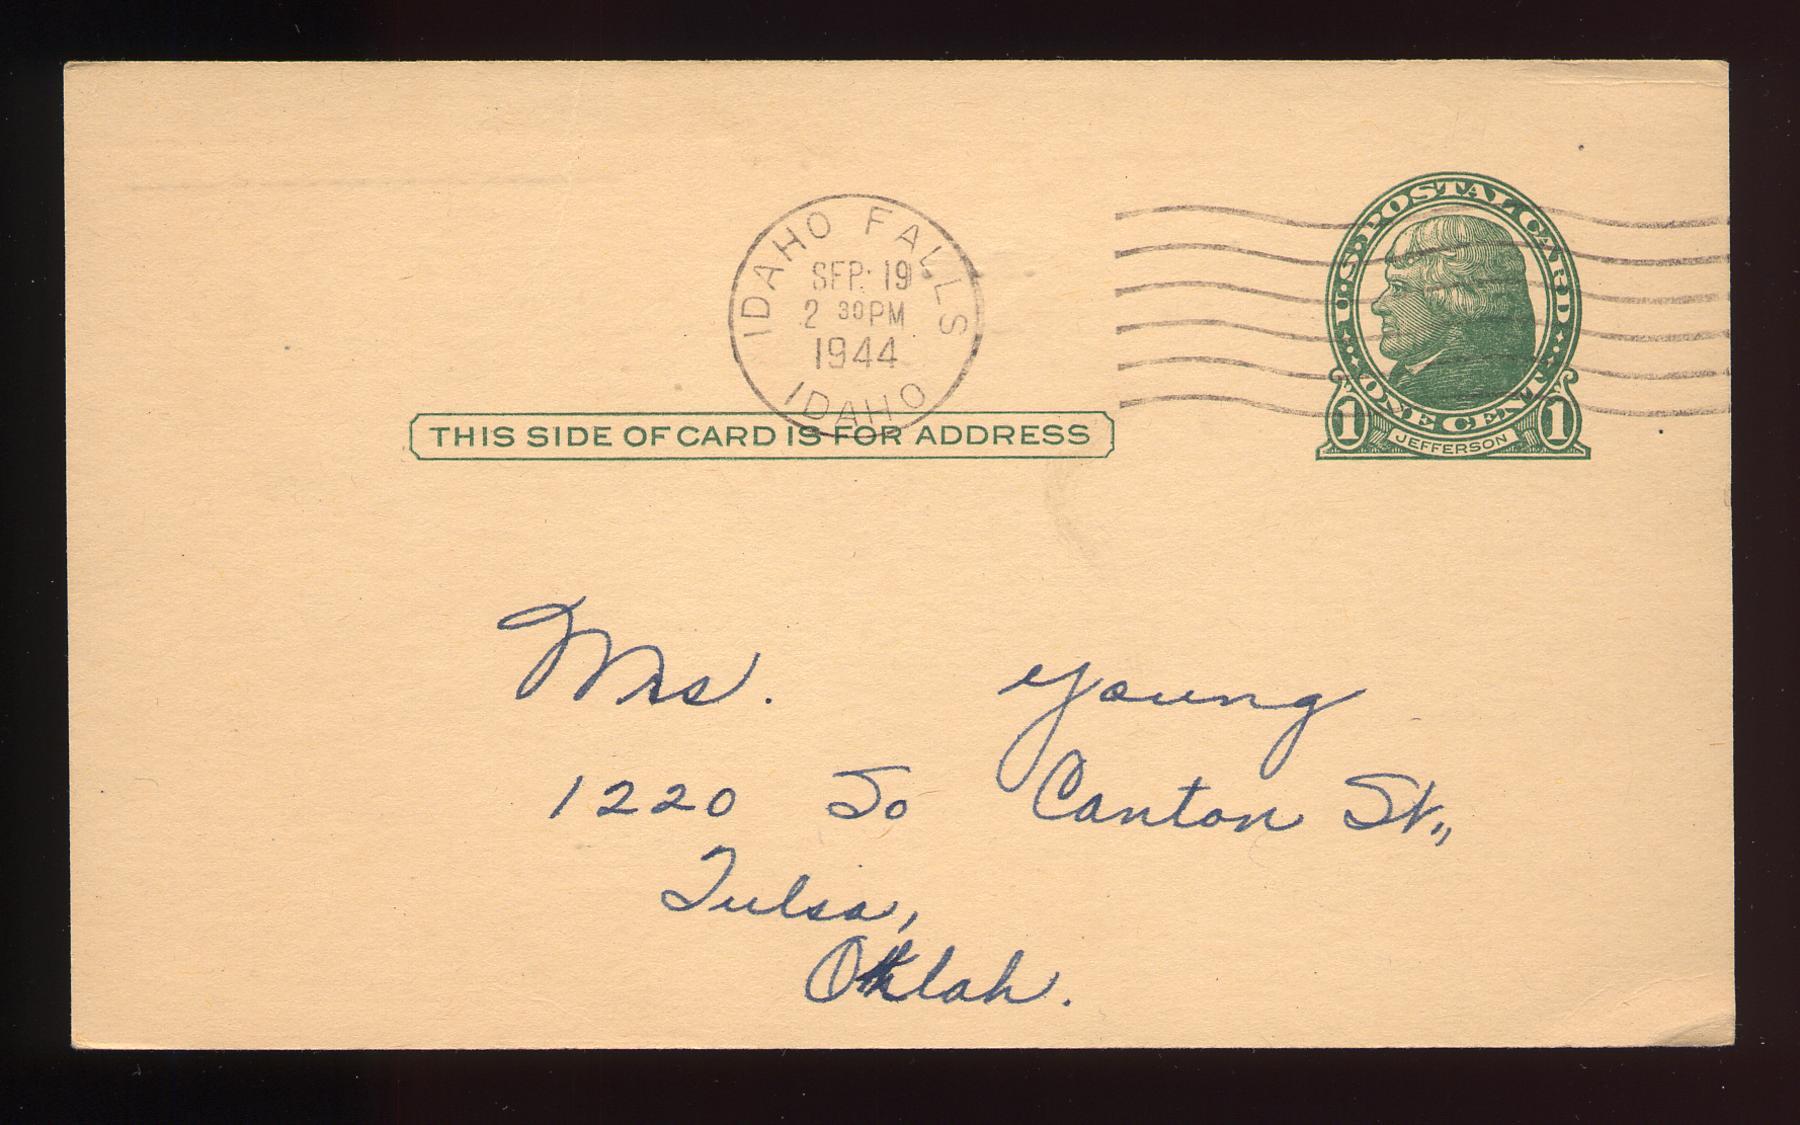 IDAHO FALLS
SEP. 19
2 30 PM
1944
IDAHO
U.S. POSTAL CARD
ONE CENT
1 JEFFERSON 1
THIS SIDE OF CARD IS FOR ADDRESS
Mrs. Young
1220 So Canton St.,,
Tulsa,
Oklah.